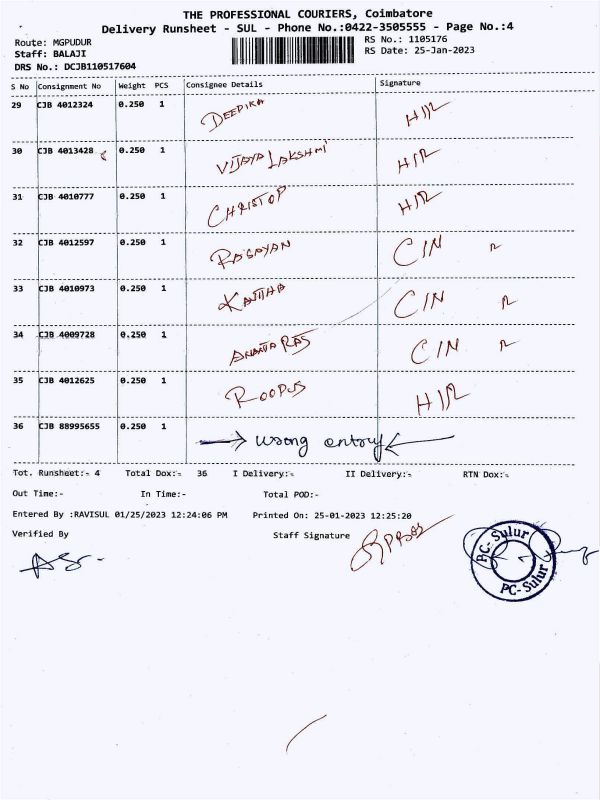 THE PROFESSIONAL COURIERS, Coimbatore
Delivery Runsheet - SUL - Phone No.:0422-3505555 - Page No.:4
Route: MGPUDUR RS No.: 1105176
Staff: BALAJI RS Date: 25-Jan-2023
DRS No.: DCJB110517604
S No Consignment No Weight PCS Consignee Details Signature
29 CJB 4012324 0.250 1 DEEPIKA
30 CJB 4013428 0.250 1 VIJAYA LAKSHMI
31 CJB 4010777 0.250 1 CHRISTOP
32 CJB 4012597 0.250 1 CIN
33 CJB 4010973 0.250 1 CIN
34 CJB 4009728 0.250 1 CIN
35 CJB 4012625 0.250 1 ROOPUS
36 CJB 88995655 0.250 1 wrong entry
Tot. Runsheet:- 4 Total Dox:- 36 I Delivery:- II Delivery:- RTN Dox:-
Out Time:- In Time:- Total POD:-
Entered By :RAVISUL 01/25/2023 12:24:06 PM Printed On: 25-01-2023 12:25:20
Verified By Staff Signature
PC- Sulur
PC- Sulur